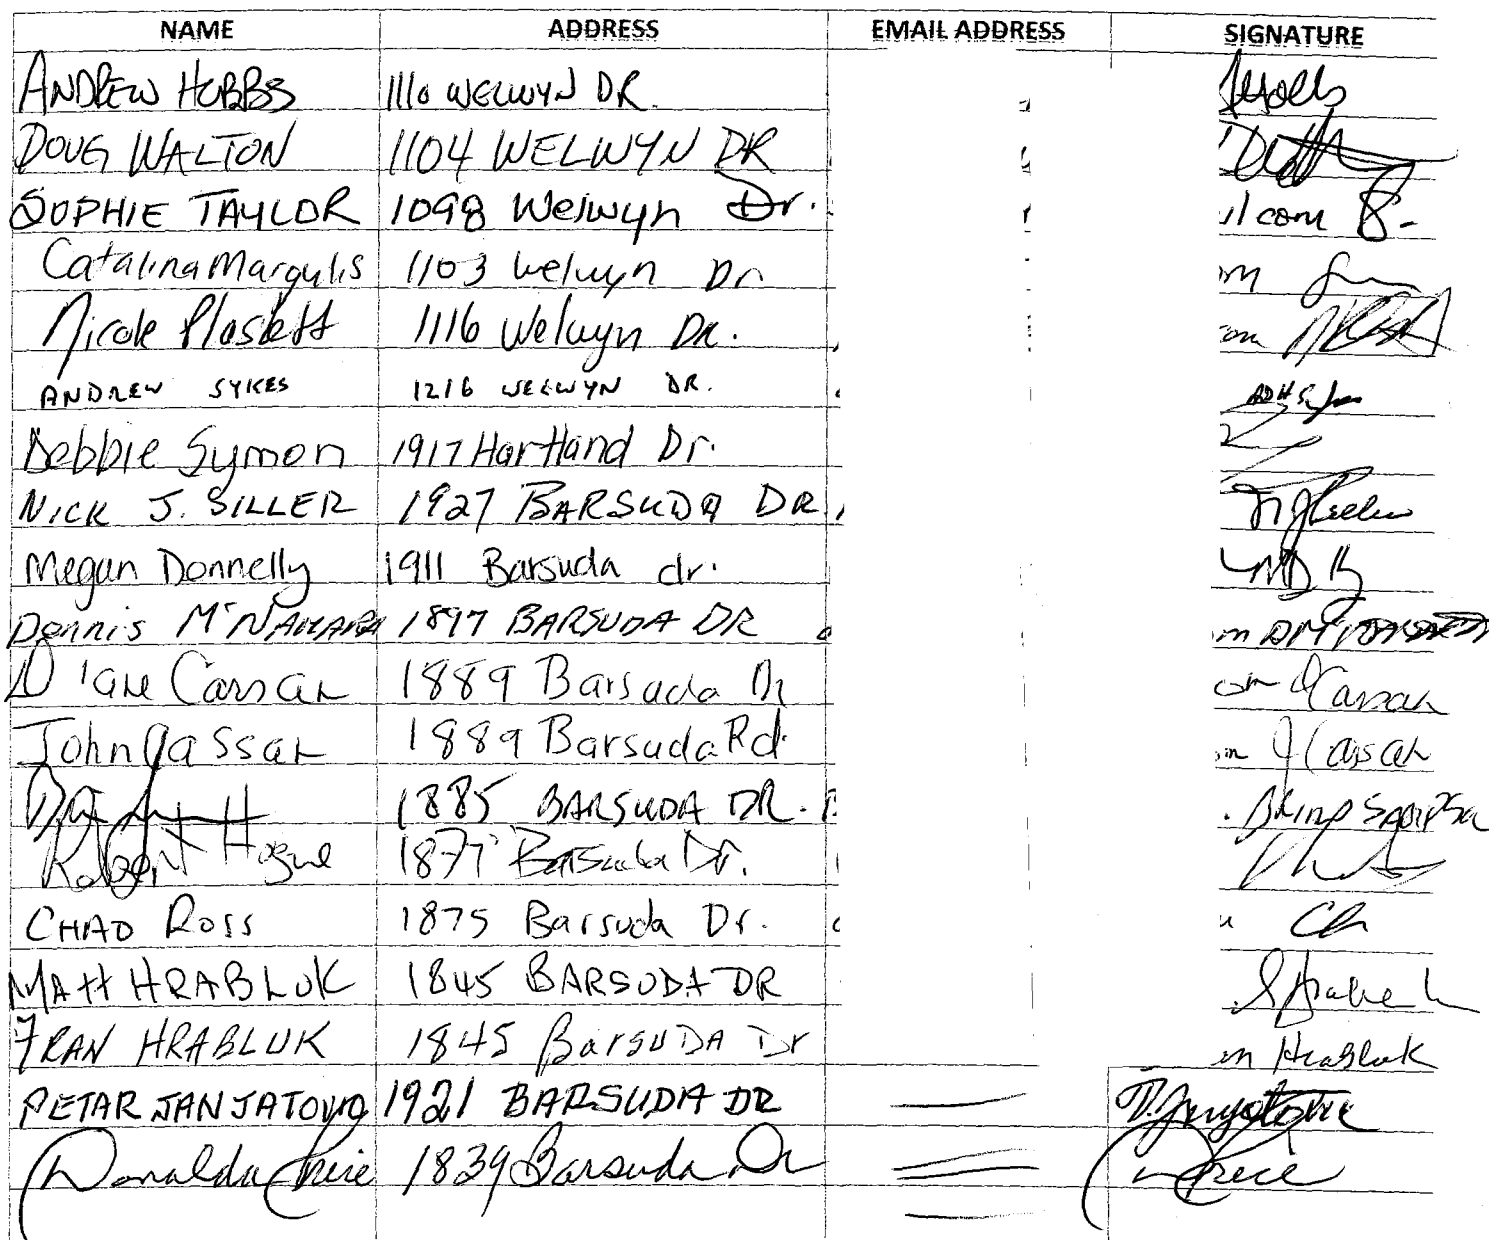 NAME ADDRESS EMAIL ADDRESS SIGNATURE
ANDREW HOBBS 1110 WELWYN DR.
DOUG WALTON 1104 WELWYN DR
SOPHIE TAYLOR 1098 Welwyn Dr. il com
Catalina Margulis 1103 Welwyn Dr om
Nicole Plaskett 1116 Welwyn Dr. om
ANDREW SYKES 1216 WELWYN DR.
Debbie Symon 1917 Hartland Dr.
NICK J. SILLER 1927 BARSUDA DR
Megan Donnelly 1911 Barsuda dr.
Dennis McNAMARA 1897 BARSUDA DR m
Diane Cassar 1889 Barsuda Dr om Cassar
John Cassar 1889 Barsuda Rd. om J Cassar
1885 BARSUDA DR.
Robert Hogue 1877 Barsuda Dr.
CHAD ROSS 1875 Barsuda Dr.
MATT HRABLUK 1845 BARSUDA DR
FRAN HRABLUK 1845 BarSUDA Dr Hrabluk
PETAR JANJATOVIC 1921 BARSUDA DR
Donalda 1839 Barsuda Dr